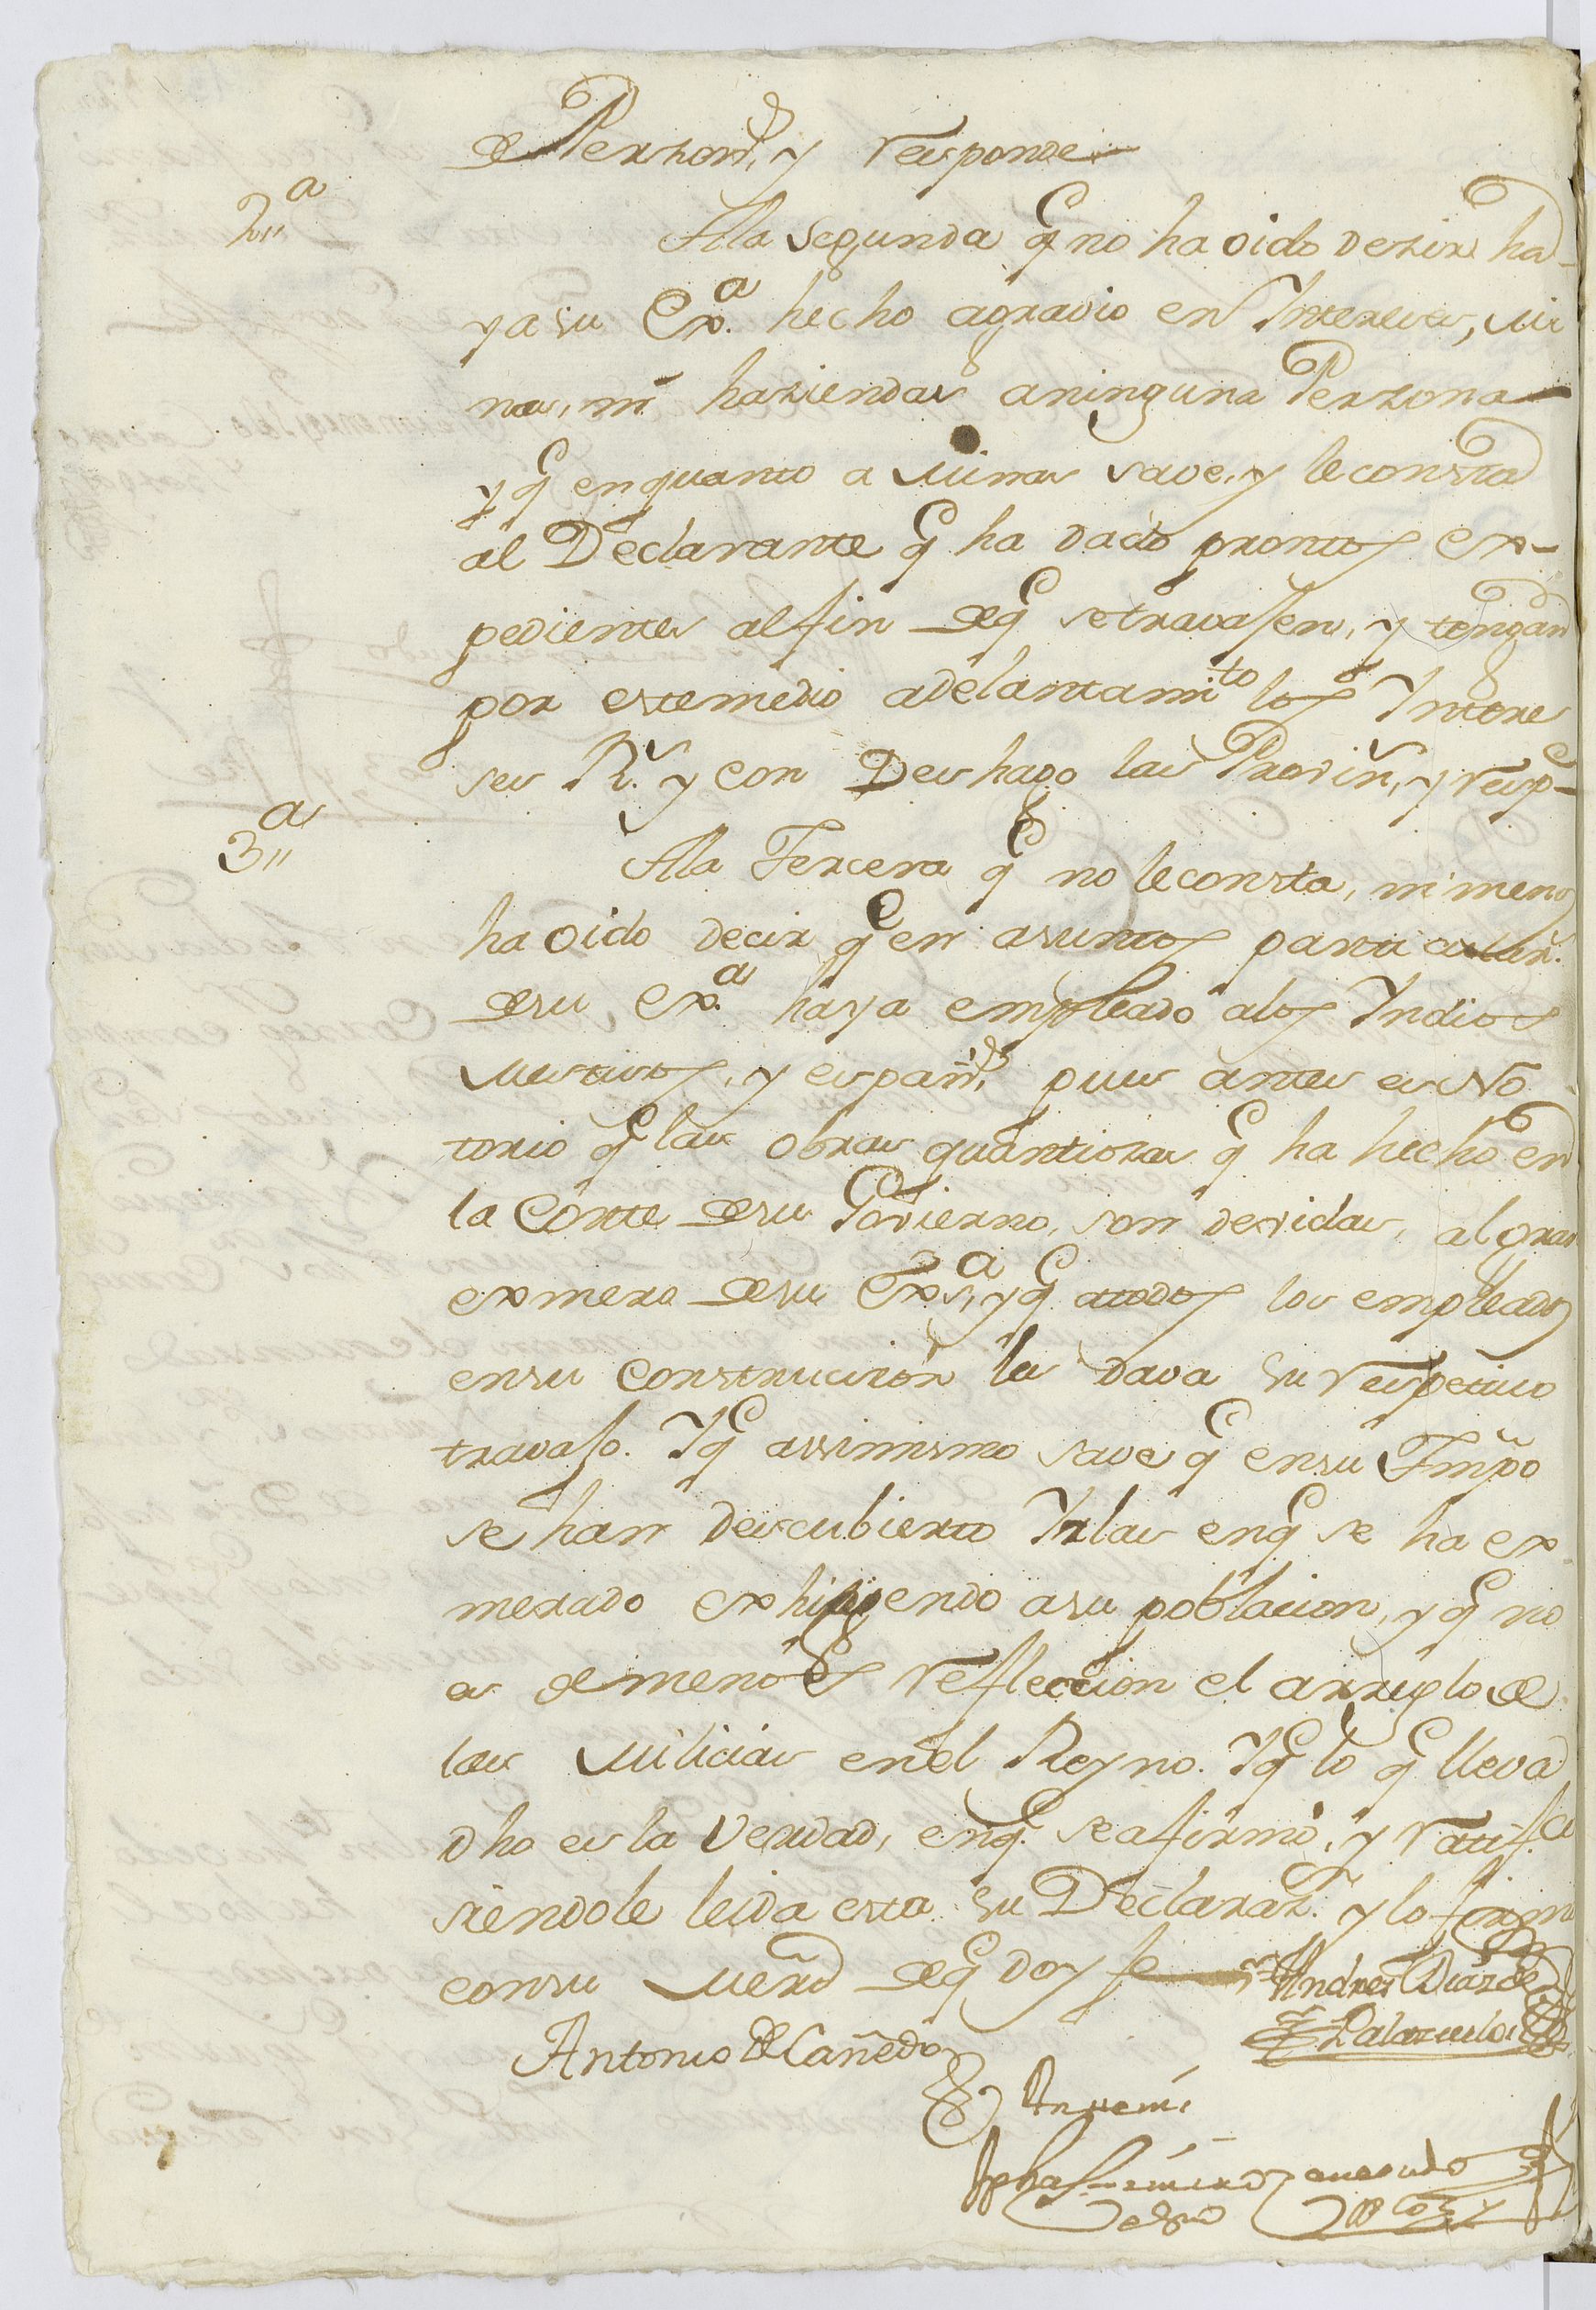 de Perzon.s, y responde
2.ª
Ala segunda q.e no ha oido dezir ha-
ya su Ex.ª hecho agravio en Intereses, mi
nas, ni haziendas a ninguna Perzona
y q.e en quanto a minas save, y le consta
al Declarante q.e ha dado prontos ex-
pedientes al fin de q.e se travajen, y tengan
por este medio adelantam.to los Intere
ses R.s y con Deshago las Provin.s, y resp.e
3.ª
Ala Tercera q.e no le consta, ni menos
ha oido decir q.e en asuntos particular.s
de su Ex.ª haya empleado alos Yndios
mestizos, y españ.s pues antes es No
torio q.e las obras quantiozas q.e ha hecho en
la Corte de su Govierno, son devidas, al gran
exmero de su Ex.ª, y q.e atodos los empleados
en su construccion les dava su respetivo
travajo. Y q.e assimismo save q.e en su Tmpõ
se han descubierto Yzlas en q.e se ha ex
merado exhigiendo a su poblacion, y q.e no
es de menos refleccion el arreglo de
las milicias en el Reyno. Y q.e lo q.e lleva
dho es la Verdad, en q.e se afirmó, y ratif.co
siendole leida esta su Declaraz.n y lo firmó
con su merd de q.e doy fe
Andres Diaz de
Palazuelos
Antonio de Cañedo
Ante mi